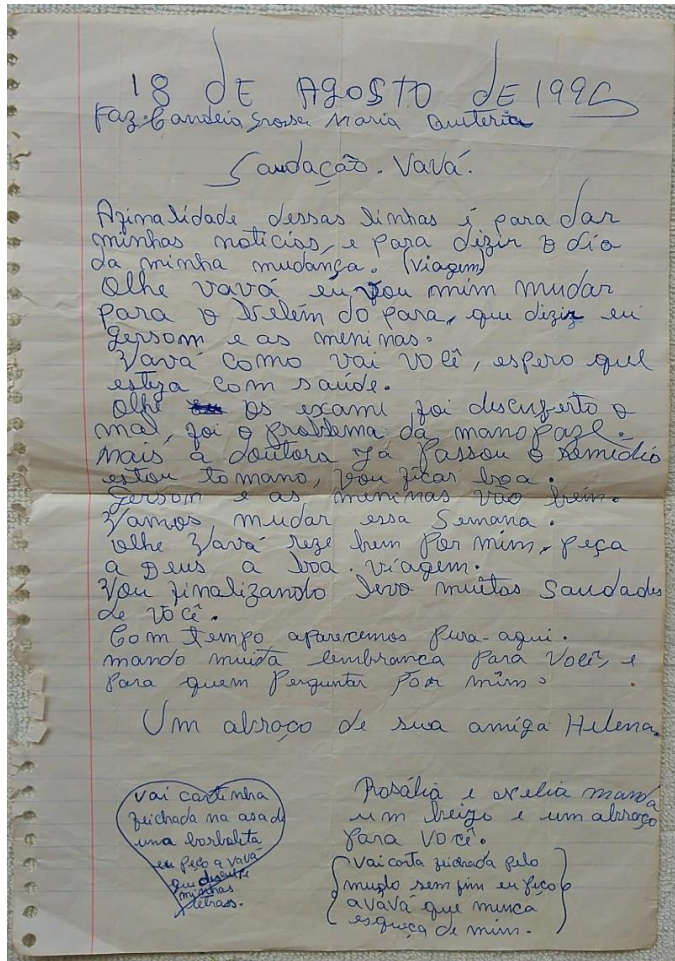 18 DE AGOSTO dE 1996
Faz. Candeia Grossa Maria Quiteria
Saudação. Vavá.
Afinalidade dessas linhas é para dar
minhas noticias, e para dizir o dia
da minha mudança. (viagem)
Olhe vavá eu vou mim mudar
para o Belém do para, que dizir eu
Gersom e as meninas.
Vavá como vai você, espero que
esteja com saúde.
Olhe os exami foi descuberto o
mal, foi o problema da
mais a doutora já passou o remédio
estou tomano, vou ficar boa.
Gersom e as meninas vão bem.
Vamos mudar essa semana.
olhe Vavá reze bem por mim, peça
a Deus a boa. viagem.
Vou finalizando levo muitas saudades
de você.
Com tempo aparecemos pura-aqui.
mando muita lembrança para você, e
para quem perguntar por mim.
Um abraço de sua amiga Helena.
vai cartinha
feichada na asa de
uma borboleta
eu peço a vavá
que desculpe
minhas
letras.
Rosália e manda
um beizo e um abraço
para você.
vai carta feichada pelo
mudo sem fim eu peço
a vavá que nunca
esqueça de mim.